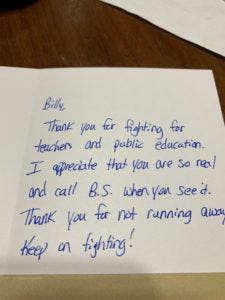 Billy,
Thank you for fighting for
teachers and public education.
I appreciate that you are so real
and call B.S. when you see it.
Thank you for not running away
Keep on fighting!